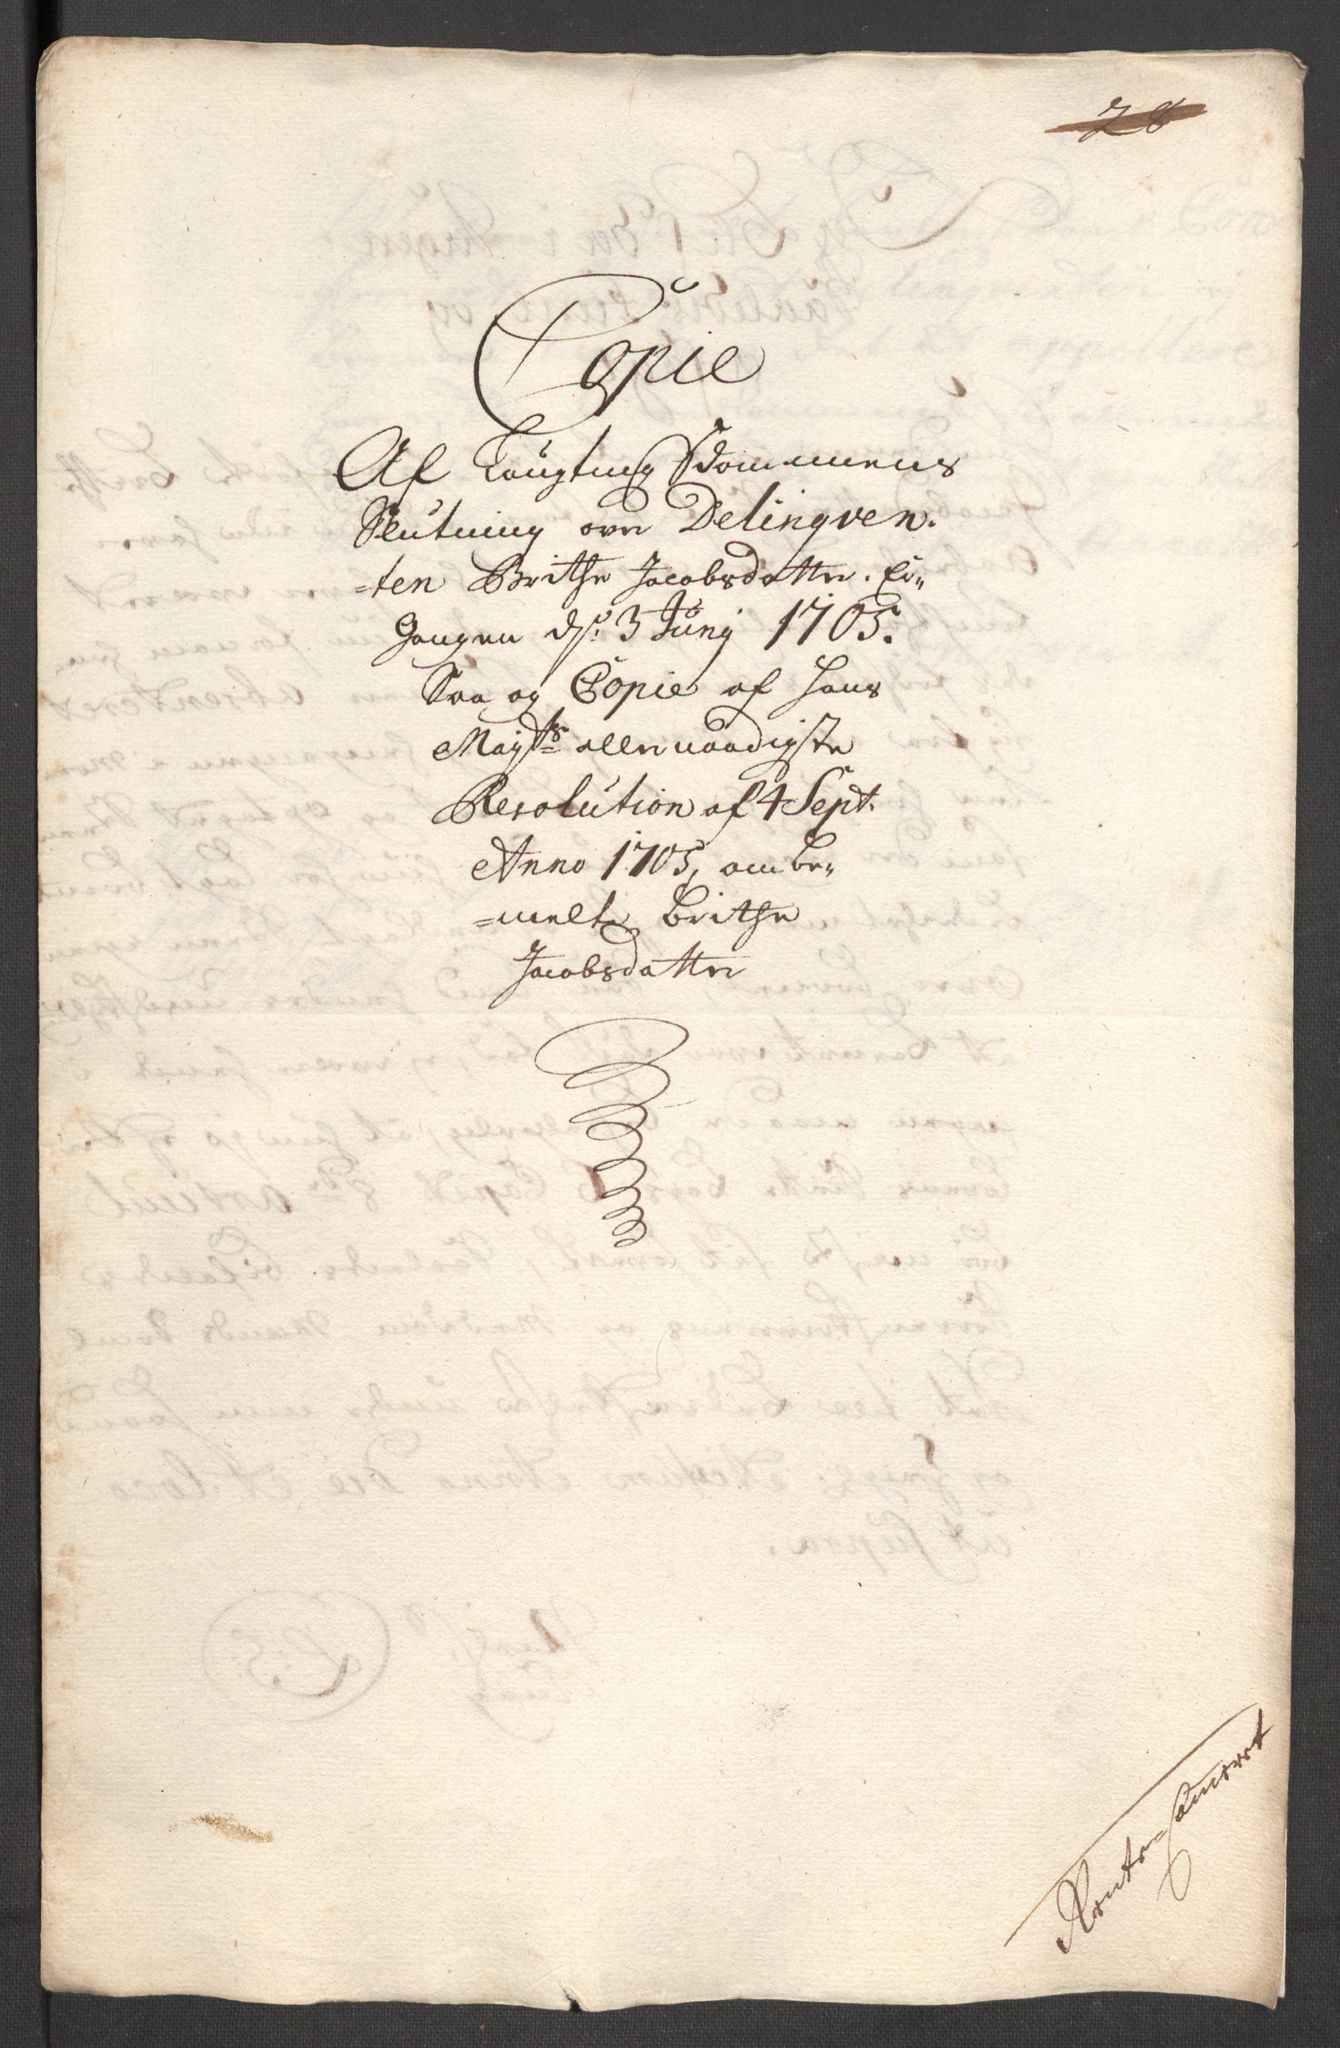 28
Copie
Af Laugting Dommens
Slutning over Delinqven-
=ten Brithe Jacobsdatter. Er-
gangen ds: 3 Junij 1705.
Saa og Copie af Hans
Mayts allernaadigste
Resolution af 4 Sept.
Anno 1705, om be-
=melte Brithe
Jacobsdatter
Rente-Cameret